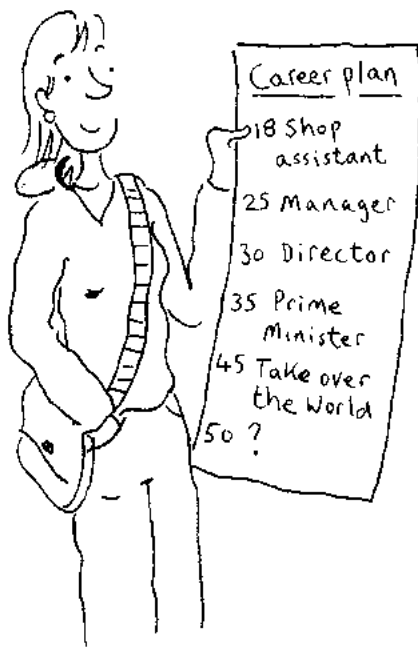 Career plan
18 Shop
assistant
25 Manager
30 Director
35 Prime
Minister
45 Take over
the World
50 ?